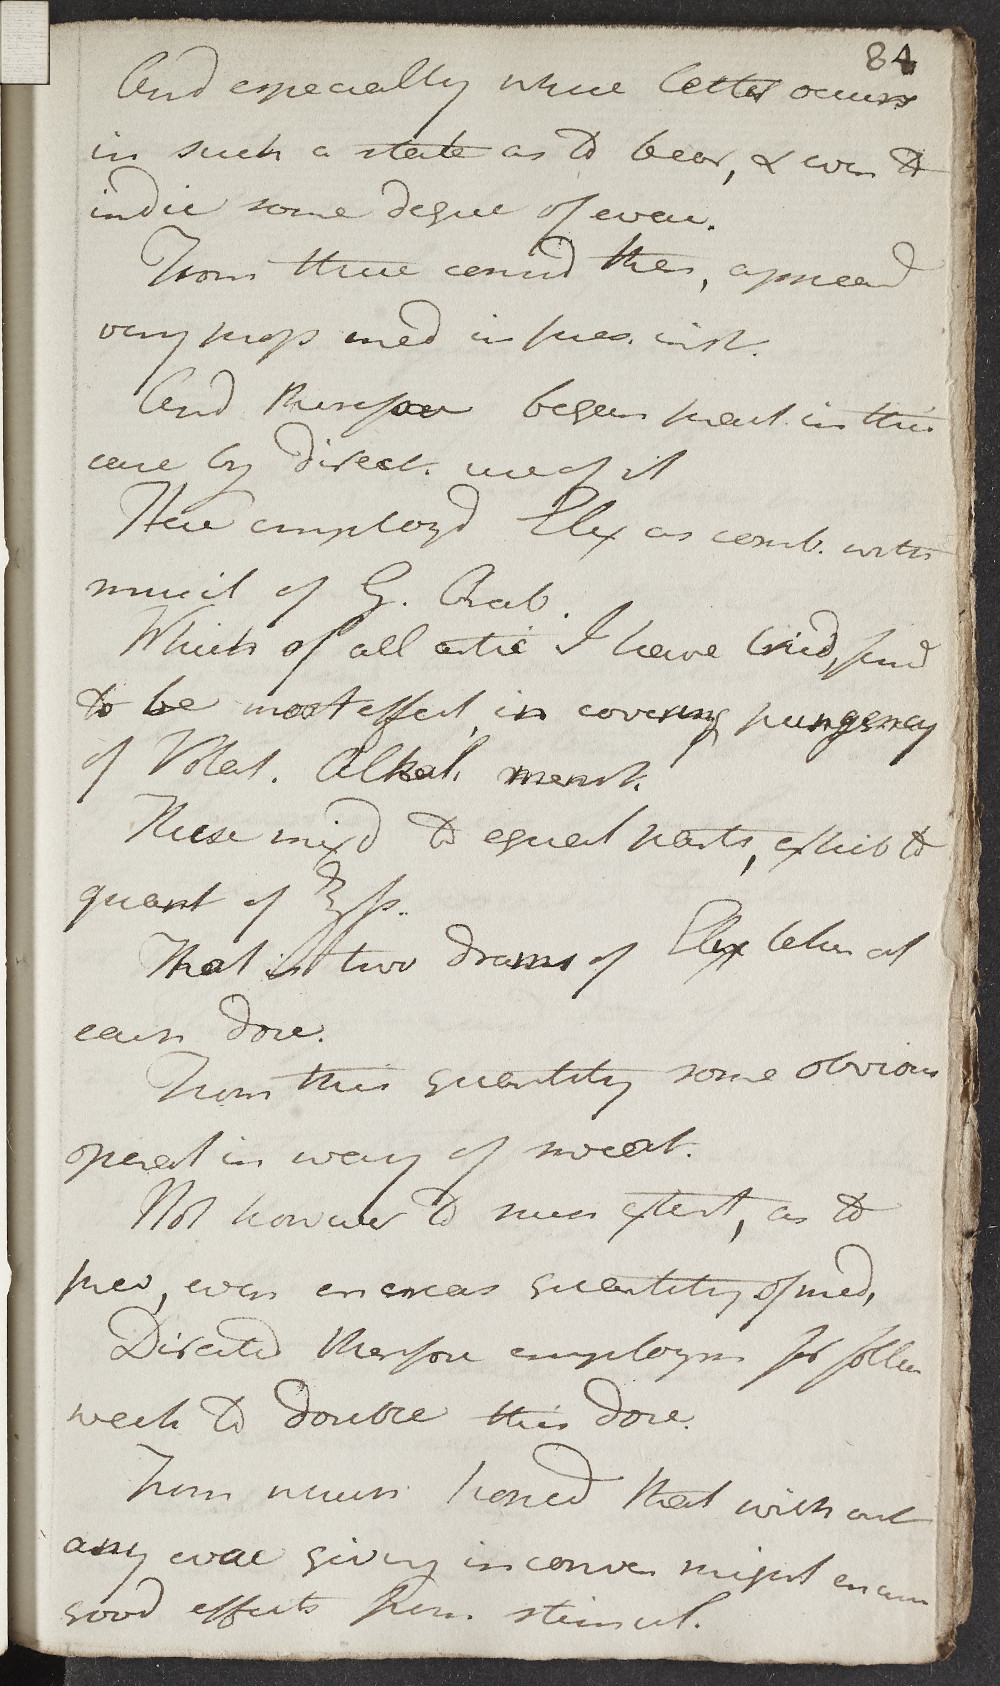 84
And especially where latter occurs
in such a state as to bear, & even to
indic some degree of evac.
From these consid then, appeard
very prop med in pres. inst.
And therefore began pract. in this
case by direct. use of it
Have employd Elix as comb. with
mucil of G. Arab.
Which of all artic I have tried, find
to be most effect. in covering pungency
of Volat. Alkal. menst.
These mixd to equal parts, exhib to
quant of ℥ss.
That is two drams of Elix taken at
each dose.
From this quantity some obvious
operat in way of sweat.
Not however to such extent, as to
prev, even encreas quantity of med.
Directed therefore employm for follow
week to double this dose.
From which hoped that without
any evac giving inconven might
good effects from stimul.